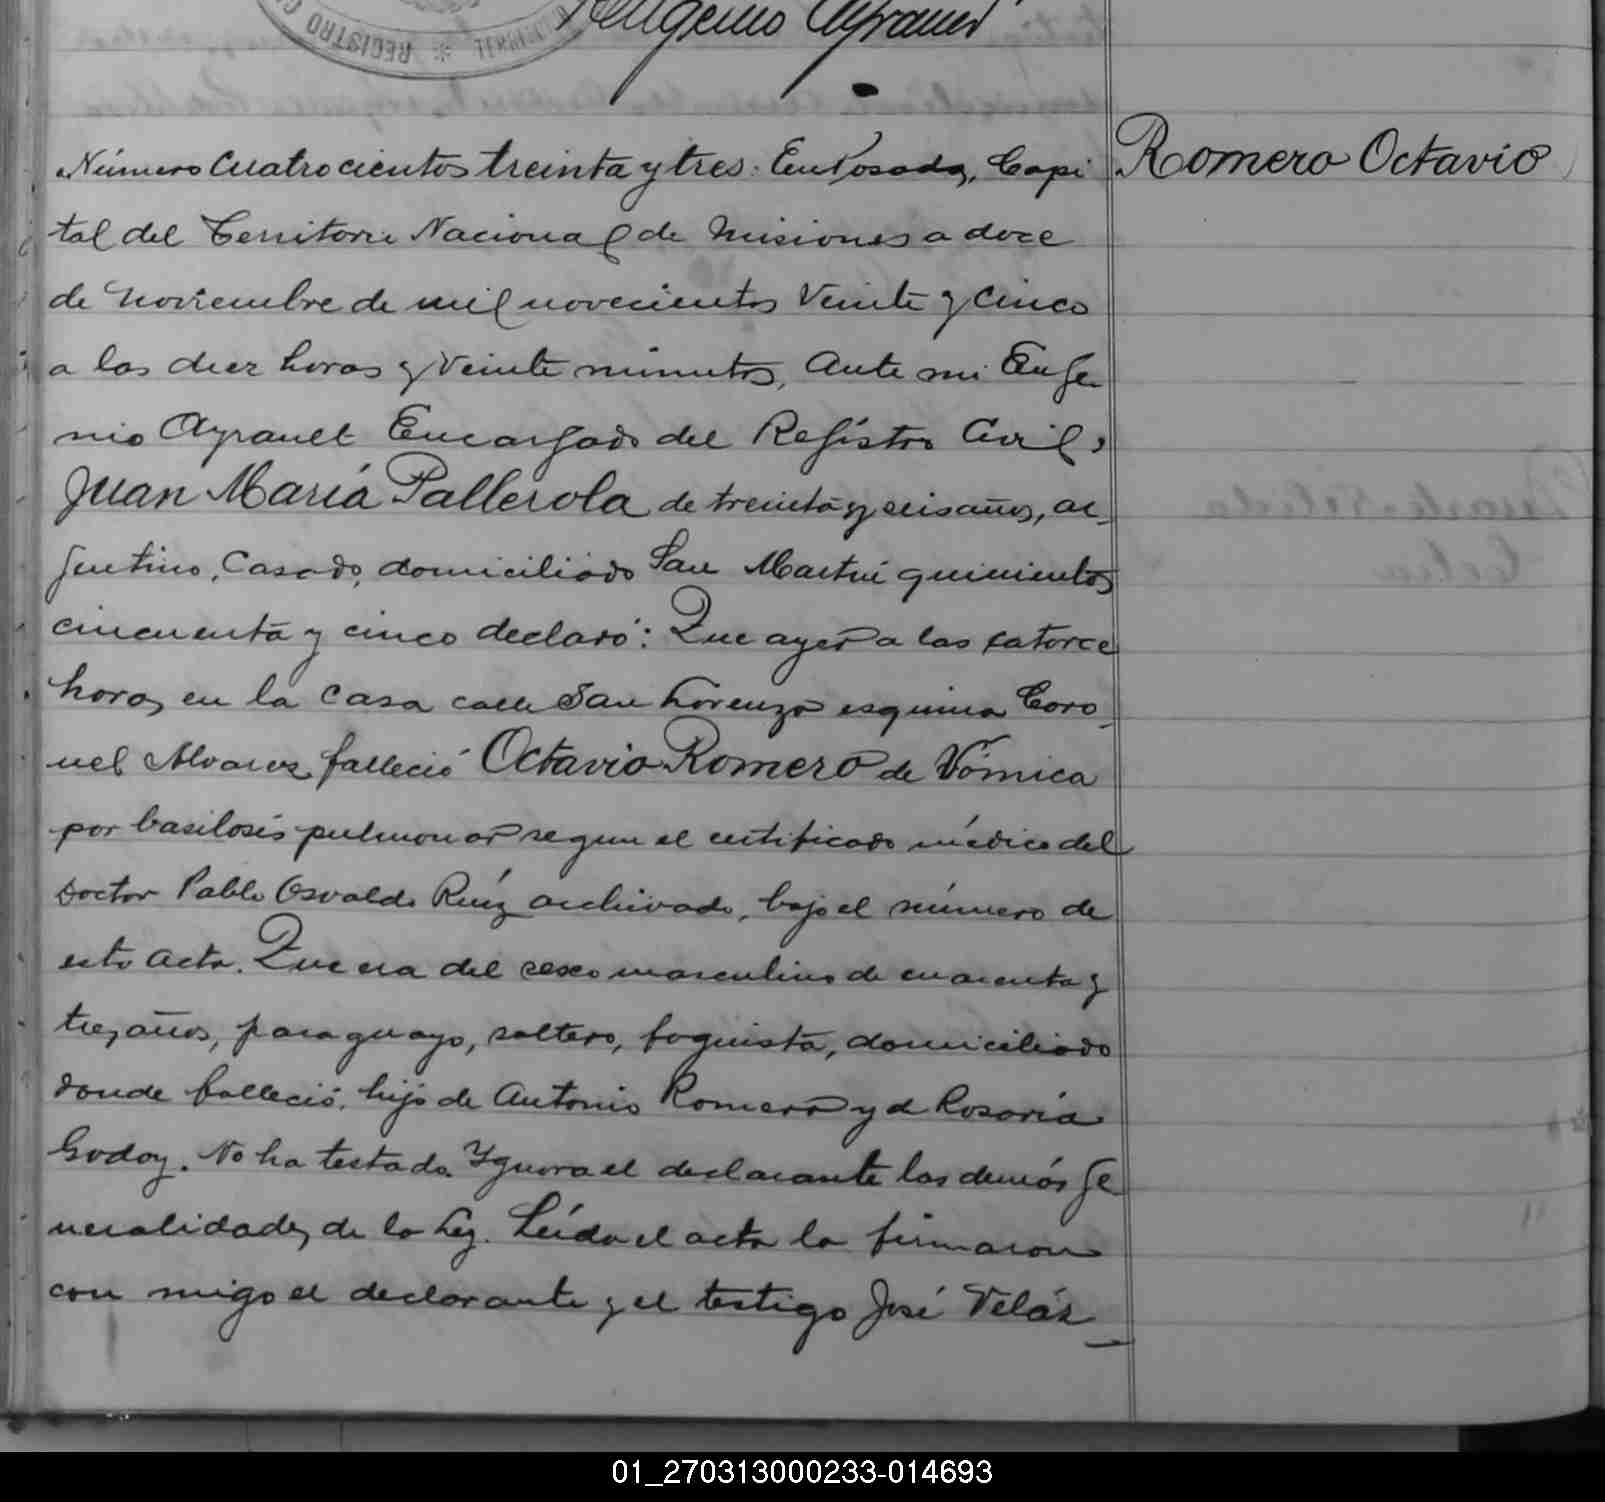 REGISTRO
Eugenio Ayrault
Número Cuatrocientos treinta y tres. En Posadas, Capi
Romero Octavio
tal del Territorio Nacional de Misiones a doce
de Noviembre de mil novecientos Veinte y cinco
a las diez horas y Veinte minutos, Ante mi Euge
nio Ayrault Encargado del Registro Civil,
Juan María Pallerola de treinta y seis años, ar
gentino, Casado, domiciliado San Martín quinientos
cincuenta y cinco declaró: Que ayer a las catorce
horas en la casa calle San Lorenzo esquina Coro
nel Alvarez falleció Octavio Romero de Vómica
por basilosis pulmonar segun el certificado médico del
Doctor Pablo Osvaldo Ruíz archivado, bajo el número de
esta Acta. Que era del sexo masculino de cuarenta y
tres años, paraguayo, soltero, foguista, domiciliado
donde falleció, hijo de Antonio Romero y de Rosaria
Godoy. No ha testado. Ygnora el declarante las demás ge
neralidades de la Ley. Leída el acta la firmaron
con migo el declarante y el testigo José Veláz
01_270313000233-014693